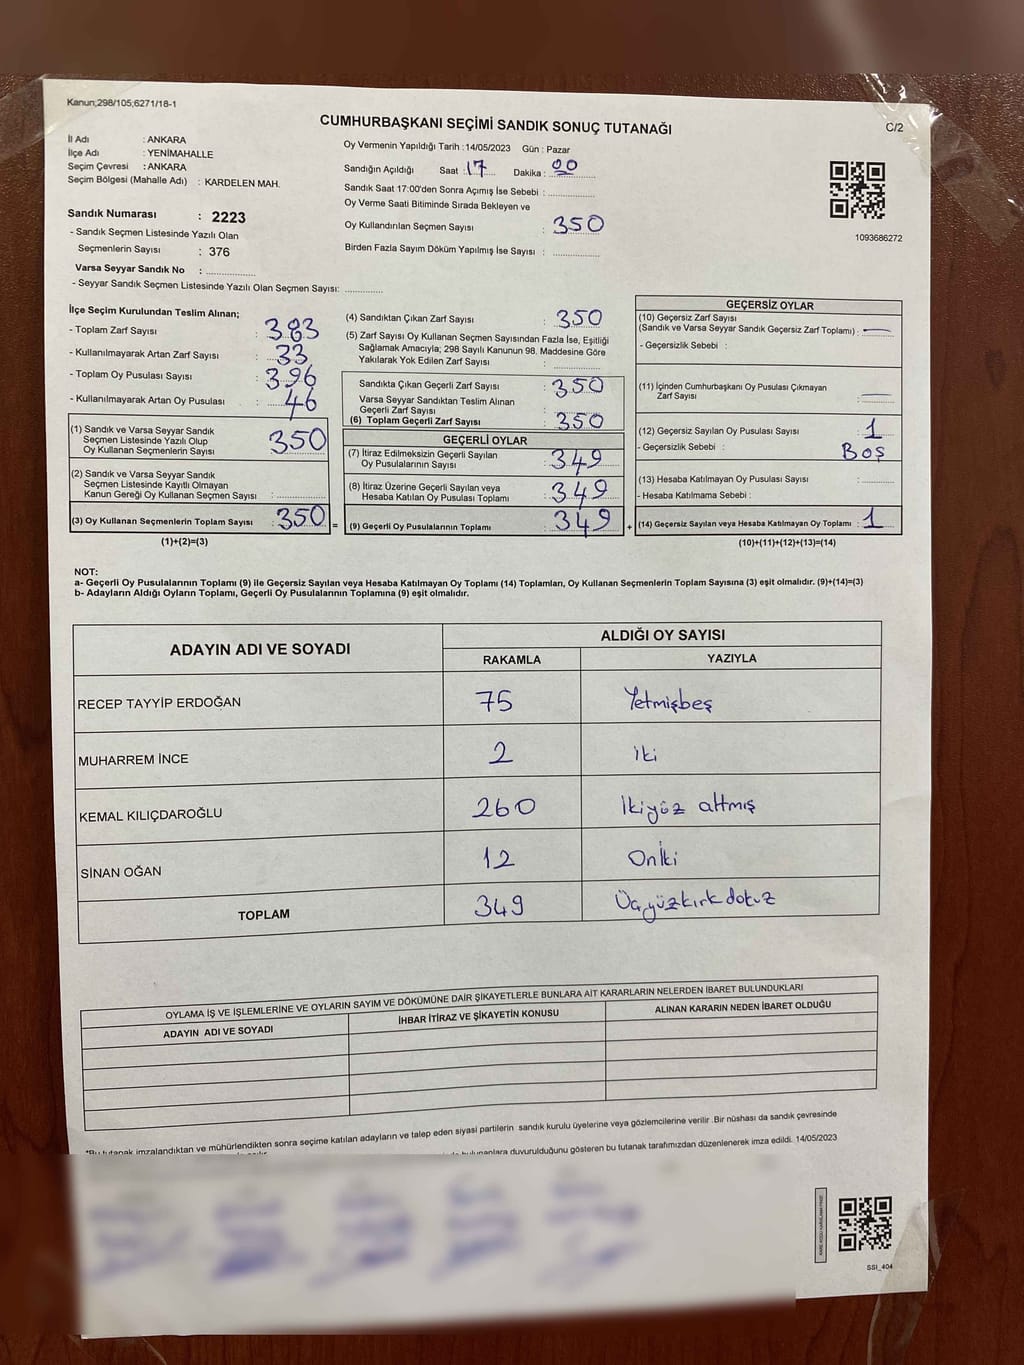 Kanun;298/105;6271/18-1
CUMHURBAŞKANI SEÇİMİ SANDIK SONUÇ TUTANAĞI
C/2
İl Adı : ANKARA
İlçe Adı : YENİMAHALLE
Seçim Çevresi : ANKARA
Seçim Bölgesi (Mahalle Adı) : KARDELEN MAH.
Sandık Numarası : 2223
- Sandık Seçmen Listesinde Yazılı Olan
Seçmenlerin Sayısı : 376
Varsa Seyyar Sandık No :
- Seyyar Sandık Seçmen Listesinde Yazılı Olan Seçmen Sayısı:
Oy Vermenin Yapıldığı Tarih :14/05/2023 Gün : Pazar
Sandığın Açıldığı Saat : 17 Dakika : 00
Sandık Saat 17:00'den Sonra Açımış İse Sebebi :
Oy Verme Saati Bitiminde Sırada Bekleyen ve
Oy Kullandırılan Seçmen Sayısı : 350
Birden Fazla Sayım Döküm Yapılmış İse Sayısı :
1093686272
İlçe Seçim Kurulundan Teslim Alınan;
- Toplam Zarf Sayısı : 383
- Kullanılmayarak Artan Zarf Sayısı : 33
- Toplam Oy Pusulası Sayısı : 396
- Kullanılmayarak Artan Oy Pusulası : 46
(1) Sandık ve Varsa Seyyar Sandık
Seçmen Listesinde Yazılı Olup
Oy Kullanan Seçmenlerin Sayısı : 350
(2) Sandık ve Varsa Seyyar Sandık
Seçmen Listesinde Kayıtlı Olmayan
Kanun Gereği Oy Kullanan Seçmen Sayısı :
(3) Oy Kullanan Seçmenlerin Toplam Sayısı : 350 =
(1)+(2)=(3)
(4) Sandıktan Çıkan Zarf Sayısı : 350
(5) Zarf Sayısı Oy Kullanan Seçmen Sayısından Fazla İse, Eşitliği
Sağlamak Amacıyla; 298 Sayılı Kanunun 98. Maddesine Göre
Yakılarak Yok Edilen Zarf Sayısı :
Sandıkta Çıkan Geçerli Zarf Sayısı : 350
Varsa Seyyar Sandıktan Teslim Alınan
Geçerli Zarf Sayısı :
(6) Toplam Geçerli Zarf Sayısı : 350
GEÇERLİ OYLAR
(7) İtiraz Edilmeksizin Geçerli Sayılan
Oy Pusulalarının Sayısı : 349
(8) İtiraz Üzerine Geçerli Sayılan veya
Hesaba Katılan Oy Pusulası Toplamı : 349
(9) Geçerli Oy Pusulalarının Toplamı : 349 +
GEÇERSİZ OYLAR
(10) Geçersiz Zarf Sayısı
(Sandık ve Varsa Seyyar Sandık Geçersiz Zarf Toplamı) : —
- Geçersizlik Sebebi :
(11) İçinden Cumhurbaşkanı Oy Pusulası Çıkmayan
Zarf Sayısı : —
(12) Geçersiz Sayılan Oy Pusulası Sayısı : 1
- Geçersizlik Sebebi : Boş
(13) Hesaba Katılmayan Oy Pusulası Sayısı :
- Hesaba Katılmama Sebebi :
(14) Geçersiz Sayılan veya Hesaba Katılmayan Oy Toplamı : 1
(10)+(11)+(12)+(13)=(14)
NOT:
a- Geçerli Oy Pusulalarının Toplamı (9) ile Geçersiz Sayılan veya Hesaba Katılmayan Oy Toplamı (14) Toplamları, Oy Kullanan Seçmenlerin Toplam Sayısına (3) eşit olmalıdır. (9)+(14)=(3)
b- Adayların Aldığı Oyların Toplamı, Geçerli Oy Pusulalarının Toplamına (9) eşit olmalıdır.
ADAYIN ADI VE SOYADI
ALDIĞI OY SAYISI
RAKAMLA YAZIYLA
RECEP TAYYİP ERDOĞAN 75 Yetmişbeş
MUHARREM İNCE 2 iki
KEMAL KILIÇDAROĞLU 260 İkiyüz altmış
SİNAN OĞAN 12 Oniki
TOPLAM 349 Üçyüzkırkdokuz
OYLAMA İŞ VE İŞLEMLERİNE VE OYLARIN SAYIM VE DÖKÜMÜNE DAİR ŞİKAYETLERLE BUNLARA AİT KARARLARIN NELERDEN İBARET BULUNDUKLARI
ADAYIN ADI VE SOYADI İHBAR İTİRAZ VE ŞİKAYETİN KONUSU ALINAN KARARIN NEDEN İBARET OLDUĞU
*Bu tutanak imzalandıktan ve mühürlendikten sonra seçime katılan adayların ve talep eden siyasi partilerin sandık kurulu üyelerine veya gözlemcilerine verilir .Bir nüshası da sandık çevresinde
duyurulduğunu gösteren bu tutanak tarafımızdan düzenlenerek imza edildi. 14/05/2023
SSI_404